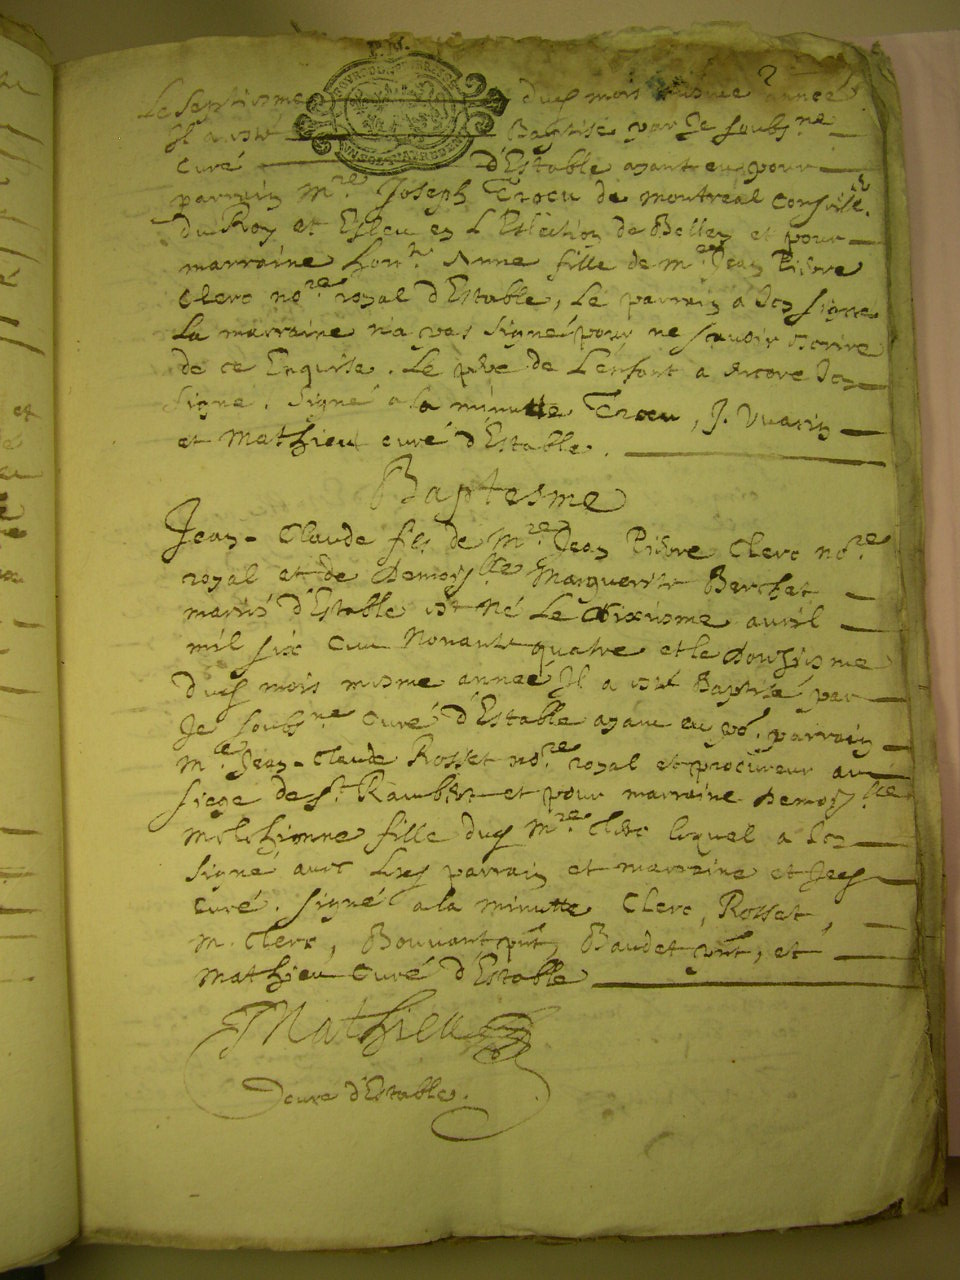 Le septiesme dud mois mesme année
Il a esté Baptisé par Je soubs.ne
Curé d'Estable ayant eu pour
parrain M.re Joseph Trocu de montreal Conseill.er
du Roy et Esleu en L'Eslection de Belley et pour
marraine hon.te Anne fille de m.re Jean Pierre
Clerc no.re royal d'Estable, Le parrain a Icy signé
La marraine n'a pas signé pour ne scavoir escrire
de ce Enquise. Le pere de L'enfant a encore Icy
signé. signé a la minutte Trocu, J. Vuarin
et Mathieu curé d'Estable.
Baptesme
Jean-Claude fils de M.re Jean Pierre Clerc no.re
royal et de Demois.lle Marguerite Berchet
mariés d'Estable est Né Le dixiesme avril
mil six cent Nonante quatre et le Douziesme
dud mois mesme année Il a esté Baptisé par
Je soubs.ne Curé d'Estable ayant eu po.r parrain
M.re Jean-Claude Rosset no.re royal et procureur au
siege de s.t Rambert et pour marraine Demois.lle
Melchionne fille dud M.re Clerc lequel a Icy
signé avec Lesd parrain et marraine et Jeed
Curé. signé a la minutte Clerc, Rosset,
M. Clerc, Bouvant pnt, Baudet pnt, et
Mathieu Curé d'Estable
Mathieu
Curé d'Estable.